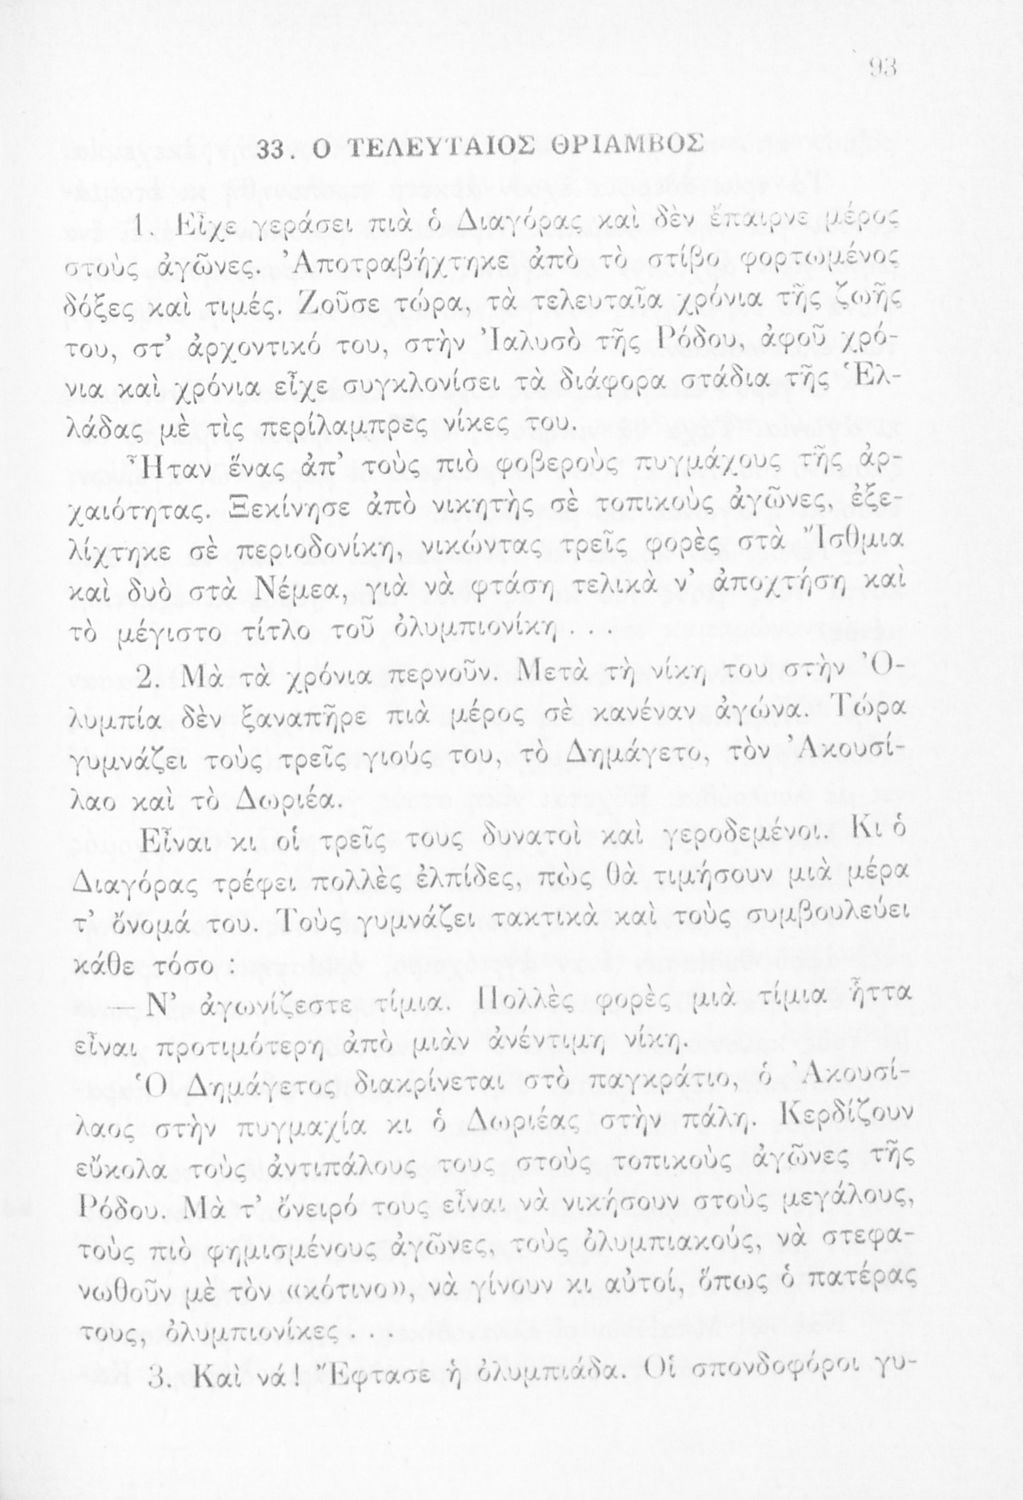 93
33. Ο ΤΕΛΕΥΤΑΙΟΣ ΘΡΙΑΜΒΟΣ
1. Εἶχε γεράσει πιὰ ὁ Διαγόρας καὶ δὲν ἔπαιρνε μέρος
στοὺς ἀγῶνες. Ἀποτραβήχτηκε ἀπὸ τὸ στίβο φορτωμένος
δόξες καὶ τιμές. Ζοῦσε τώρα, τὰ τελευταῖα χρόνια τῆς ζωῆς
του, στ’ ἀρχοντικό του, στὴν Ἰαλυσὸ τῆς Ρόδου, ἀφοῦ χρό-
νια καὶ χρόνια εἶχε συγκλονίσει τὰ διάφορα στάδια τῆς Ἑλ-
λάδας μὲ τὶς περίλαμπρες νίκες του.
Ἦταν ἕνας ἀπ’ τοὺς πιὸ φοβεροὺς πυγμάχους τῆς ἀρ-
χαιότητας. Ξεκίνησε ἀπὸ νικητὴς σὲ τοπικοὺς ἀγῶνες, ἐξε-
λίχτηκε σὲ περιοδονίκη, νικώντας τρεῖς φορὲς στὰ Ἴσθμια
καὶ δυὸ στὰ Νέμεα, γιὰ νὰ φτάση τελικὰ ν’ ἀποχτήση καὶ
τὸ μέγιστο τίτλο τοῦ ὀλυμπιονίκη . . .
2. Μὰ τὰ χρόνια περνοῦν. Μετὰ τὴ νίκη του στὴν Ὀ-
λυμπία δὲν ξαναπῆρε πιὰ μέρος σὲ κανέναν ἀγώνα. Τώρα
γυμνάζει τοὺς τρεῖς γιούς του, τὸ Δημάγετο, τὸν Ἀκουσί-
λαο καὶ τὸ Δωριέα.
Εἶναι κι οἱ τρεῖς τους δυνατοὶ καὶ γεροδεμένοι. Κι ὁ
Διαγόρας τρέφει πολλὲς ἐλπίδες, πὼς θὰ τιμήσουν μιὰ μέρα
τ’ ὄνομά του. Τοὺς γυμνάζει τακτικὰ καὶ τοὺς συμβουλεύει
κάθε τόσο :
— Ν’ ἀγωνίζεστε τίμια. Πολλὲς φορὲς μιὰ τίμια ἧττα
εἶναι προτιμότερη ἀπὸ μιὰν ἀνέντιμη νίκη.
Ὁ Δημάγετος διακρίνεται στὸ παγκράτιο, ὁ Ἀκουσί-
λαος στὴν πυγμαχία κι ὁ Δωριέας στὴν πάλη. Κερδίζουν
εὔκολα τοὺς ἀντιπάλους τους στοὺς τοπικοὺς ἀγῶνες τῆς
Ρόδου. Μὰ τ’ ὄνειρό τους εἶναι νὰ νικήσουν στοὺς μεγάλους,
τοὺς πιὸ φημισμένους ἀγῶνες, τοὺς ὀλυμπιακούς, νὰ στεφα-
νωθοῦν μὲ τὸν «κότινο», νὰ γίνουν κι αὐτοί, ὅπως ὁ πατέρας
τους, ὀλυμπιονίκες . . .
3. Καὶ νά! Ἔφτασε ἡ ὀλυμπιάδα. Οἱ σπονδοφόροι γυ-